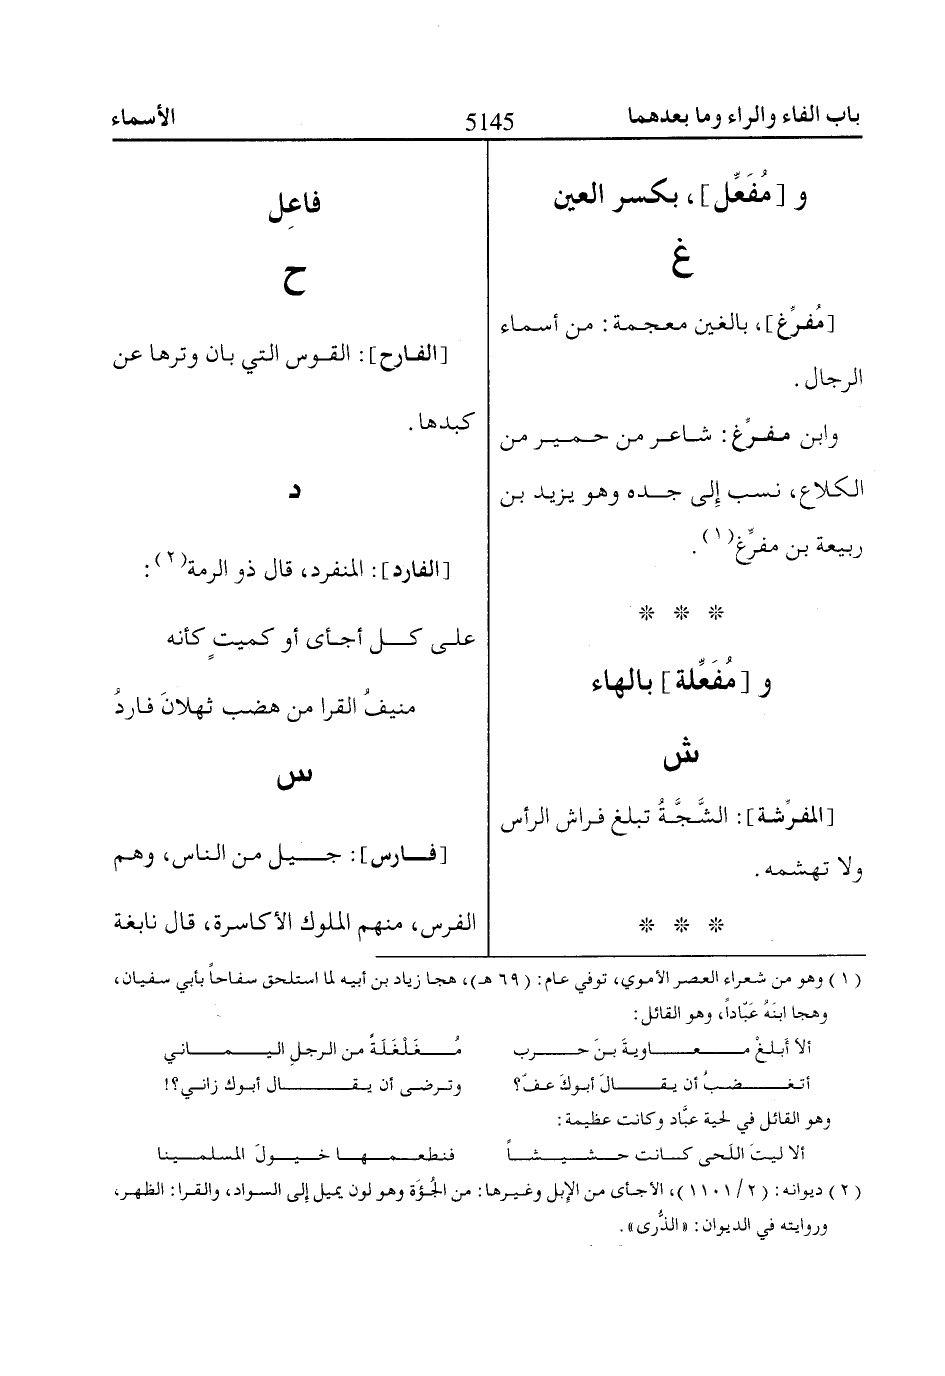 باب الفاء والراء وما بعدهما
5145
الأسماء
و [مُفَعِّل]، بكسر العين
غ
[مُفرِّغ]، بالغين معجمة: من أسماء
الرجال.
وابن مفرِّغ: شاعر من حمير من
الكلاع، نسب إلى جده وهو يزيد بن
ربيعة بن مفرِّغ(١).
* * *
و [مُفَعِّلة] بالهاء
ش
[المفرِّشة]: الشَّجَّةُ تبلغ فراش الرأس
ولا تهشمه.
* * *
فاعِل
ح
[الفارح]: القوس التي بان وترها عن
كبدها.
د
[الفارد]: المنفرد، قال ذو الرمة(٢):
على كل أجأى أو كميتٍ كأنه
منيفُ القرا من هضب ثهلانَ فاردُ
س
[فارس]: جيل من الناس، وهم
الفرس، منهم الملوك الأكاسرة، قال نابغة
(١) وهو من شعراء العصر الأموي، توفي عام: (٦٩ هـ)، هجا زياد بن أبيه لما استلحق سفاحاً بأبي سفيان،
وهجا ابنَهُ عَبّاداً، وهو القائل:
ألا أَبلغْ معاويةَ بنَ حرب مُغَلْغَلَةً من الرجلِ اليماني
أتغضبُ أن يقالَ أبوكَ عفّ؟ وترضى أن يقال أبوك زاني؟!
وهو القائل في لحية عبَّاد وكانت عظيمة:
ألا ليتَ اللَحى كانت حشيشاً فنطعمها خيولَ المسلمينا
(٢) ديوانه: (١١٠١/٢)، الأجأى من الإبل وغيرها: من الجُؤَة وهو لون يميل إلى السواد، والقرا: الظهر،
وروايته في الديوان: «الذُّرى».